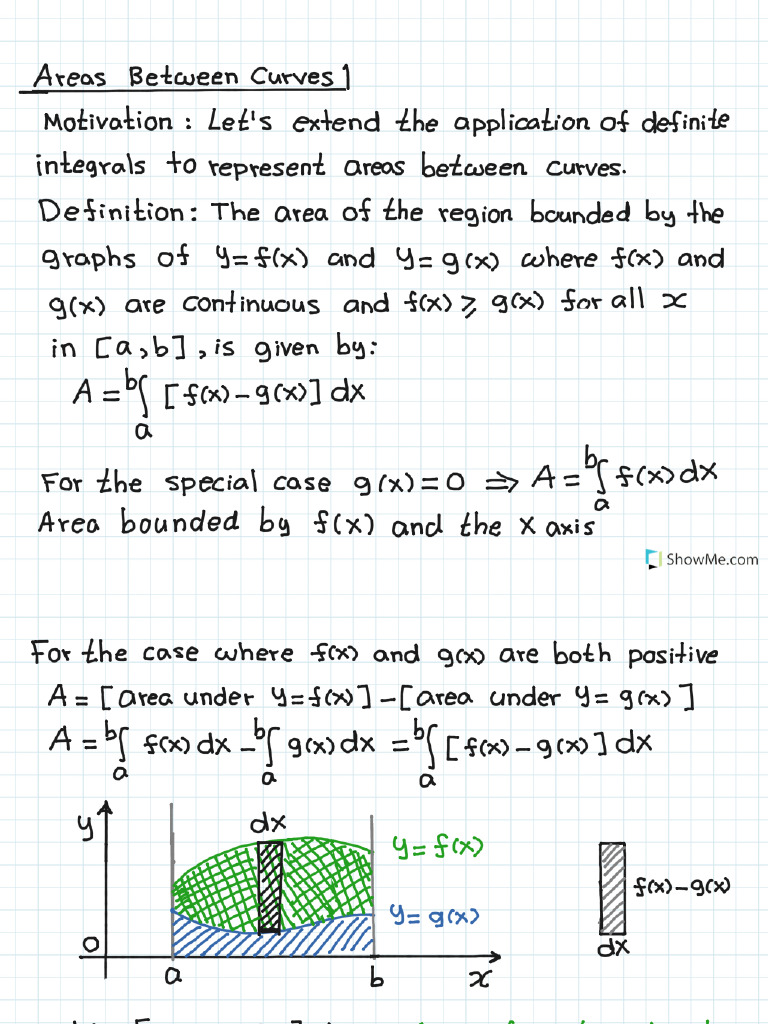 Areas Between Curves 1
Motivation : Let's extend the application of definite
integrals to represent areas between curves.
Definition: The area of the region bounded by the
graphs of y=f(x) and y=g(x) where f(x) and
g(x) are continuous and f(x) ⩾ g(x) for all x
in [a,b], is given by:
A = ∫ₐᵇ [f(x)-g(x)] dx
For the special case g(x)=0 ⇒ A = ∫ₐᵇ f(x) dx
Area bounded by f(x) and the X axis
ShowMe.com
For the case where f(x) and g(x) are both positive
A = [area under y=f(x)] - [area under y=g(x)]
A = ∫ₐᵇ f(x) dx - ∫ₐᵇ g(x) dx = ∫ₐᵇ [f(x)-g(x)] dx
y
dx
y=f(x)
f(x)-g(x)
y=g(x)
0
dx
a
b
x